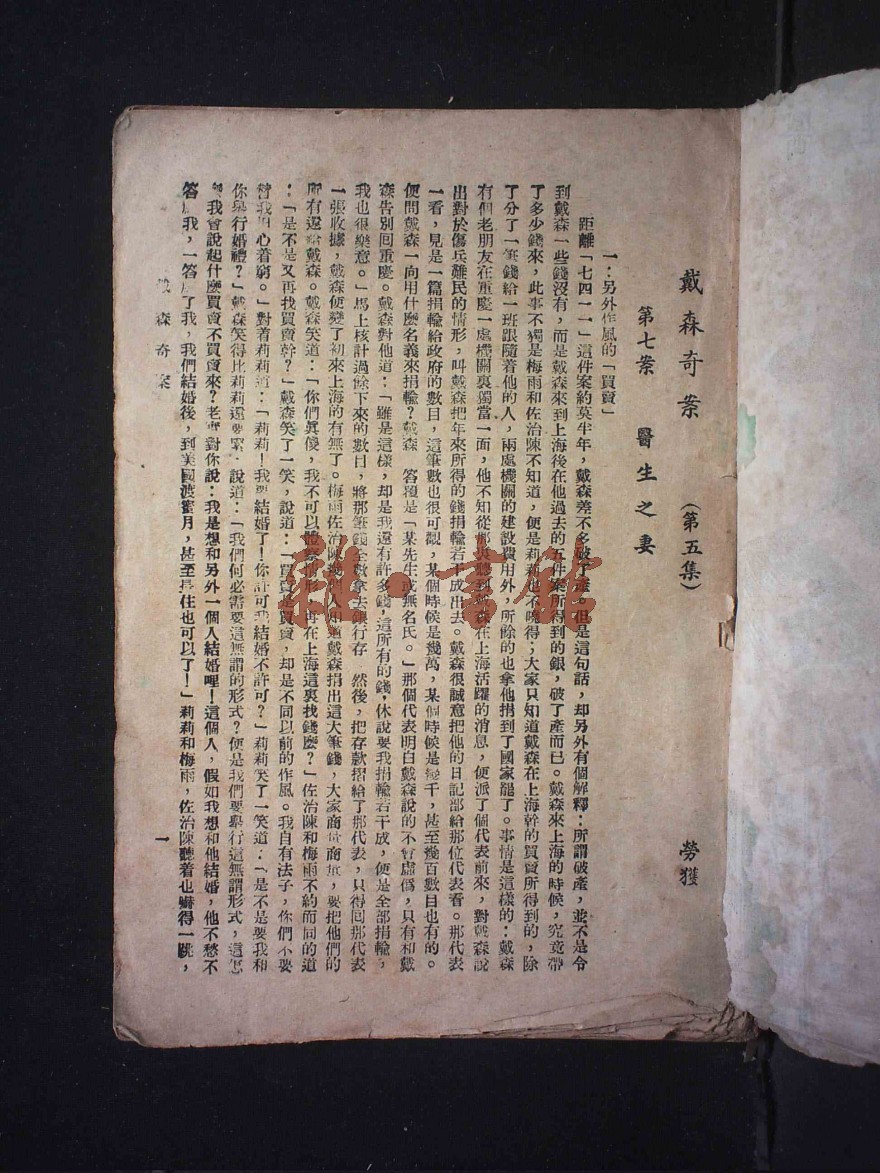 戴森奇案 (第五集) 勞獲
第七案 醫生之妻
一：另外作風的「買賣」
距離「七四一一」這件案約莫半年，戴森差不多破了產。但是這句話，却另外有個解釋：所謂破產，並不是令
到戴森一些錢沒有，而是戴森來到上海後在他過去的五件案所得到的銀，破了產而已。戴森來上海的時候，究竟帶
了多少錢來，此事不獨是梅雨和佐治陳不知道，便是莉莉也不曉得；大家只知道戴森在上海幹的買賣所得到的，除
了分了一筆錢給一班跟隨着他的人，兩處機關的建設費用外，所餘的也拿他捐到了國家罷了。事情是這樣的：戴森
有個老朋友在重慶一處機關裏獨當一面，他不知從那裏聽到戴森在上海活躍的消息，便派了個代表前來，對戴森說
出對於傷兵難民的情形，叫戴森把年來所得的錢捐輸若干成出去。戴森很誠意把他的日記部給那位代表看。那代表
一看，見是一篇捐輸給政府的數目，這筆數也很可觀，某個時候是幾萬，某個時候是幾千，甚至幾百數目也有的。
便問戴森一向用什麼名義來捐輸？戴森 答覆是「某先生或無名氏。」那個代表明白戴森說的不會虛僞，只有和戴
森告別回重慶。戴森對他道：「雖是這樣，却是我還有許多錢，這所有的錢，休說要我捐輸若干成，便是全部捐輸，
我也很樂意。」馬上核計過餘下來的數目，將那筆錢全數拿去銀行存 然後，把存款摺給了那代表，只得回那代表
一張收據，戴森便變了初來上海的有無了。梅雨佐治陳幾個人知道戴森捐出這大筆錢，大家商量商量，要把他們的
所有還給戴森。戴森笑道：「你們眞傻，我不可以體察情形，再在上海這裏找錢麼？」佐治陳和梅雨不約而同的道
：「是不是又再找買賣幹？」戴森笑了一笑，說道：「買賣是買賣，却是不同以前的作風。我自有法子，你們不要
替我担心着窮。」對着莉莉道：「莉莉！我要結婚了！你許可我結婚不許可？」莉莉笑了一笑道：「是不是要我和
你舉行婚禮？」戴森笑得比莉莉還要緊，說道：「我們何必需要這無謂的形式？便是我們要舉行這無謂形式，這怎
我會說起什麼買賣不買賣來？老實對你說：我是想和另外一個人結婚哩！這個人，假如我想和他結婚，他不愁不
答應我，一答應了我，我們結婚後，到美國渡蜜月，甚至長住也可以了！」莉莉和梅雨，佐治陳聽着也嚇得一跳，
戴森奇案 一
粼山書館